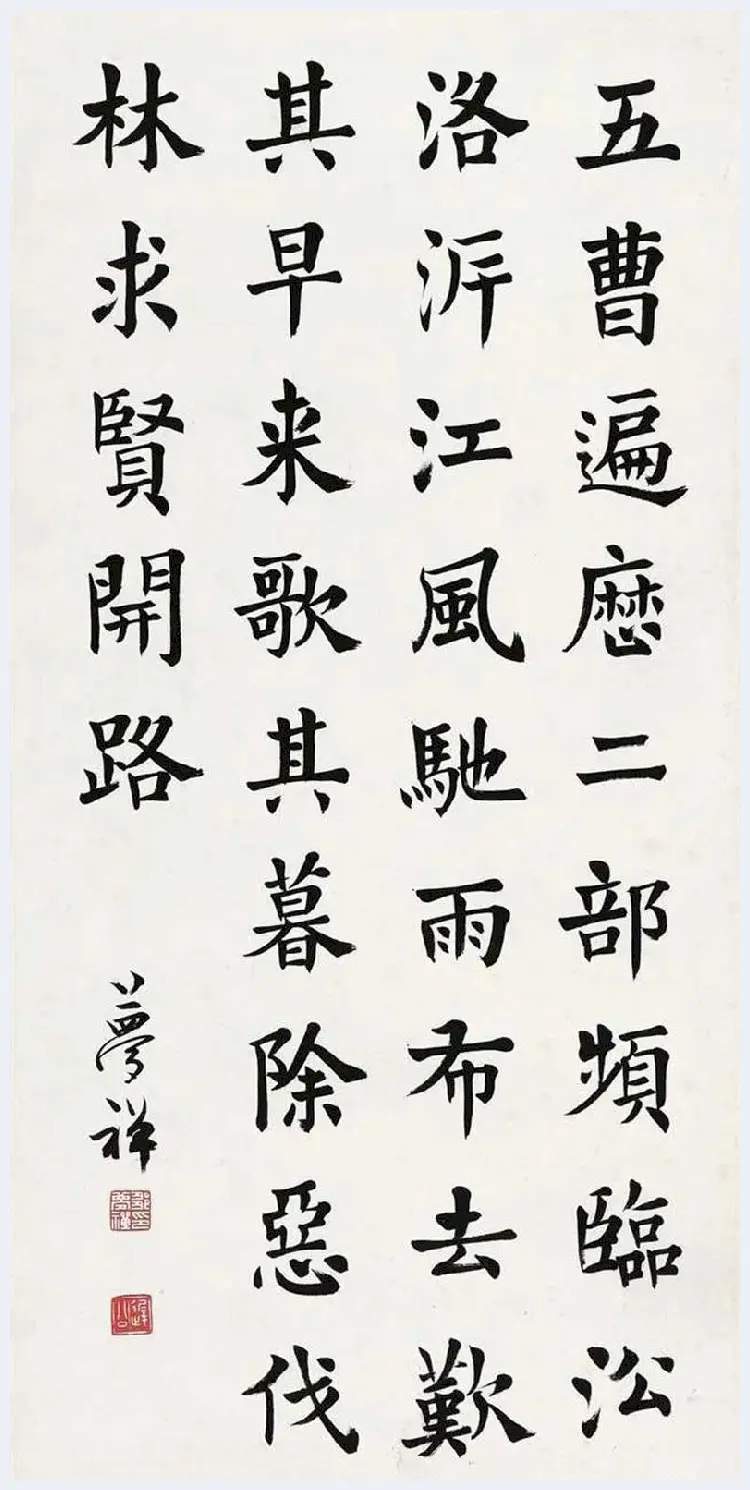 五曹遍歷二部頻臨沿
洛泝江風馳雨布去歎
其早来歌其暮除惡伐
林求賢開路
夢祥